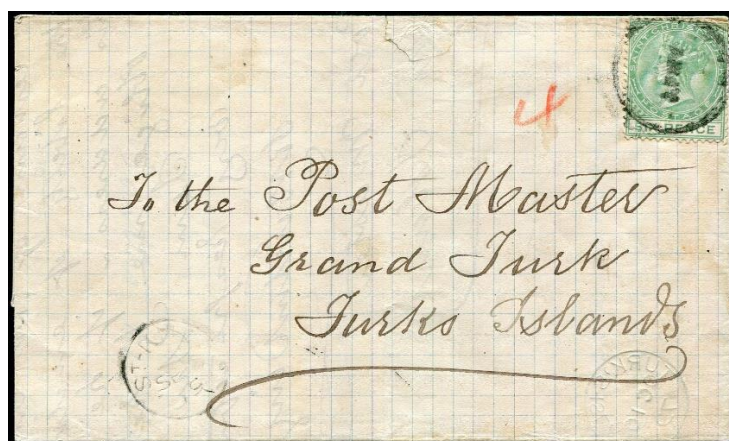 4
SIXPENCE
To the Post Master
Grand Turk
Turks Islands